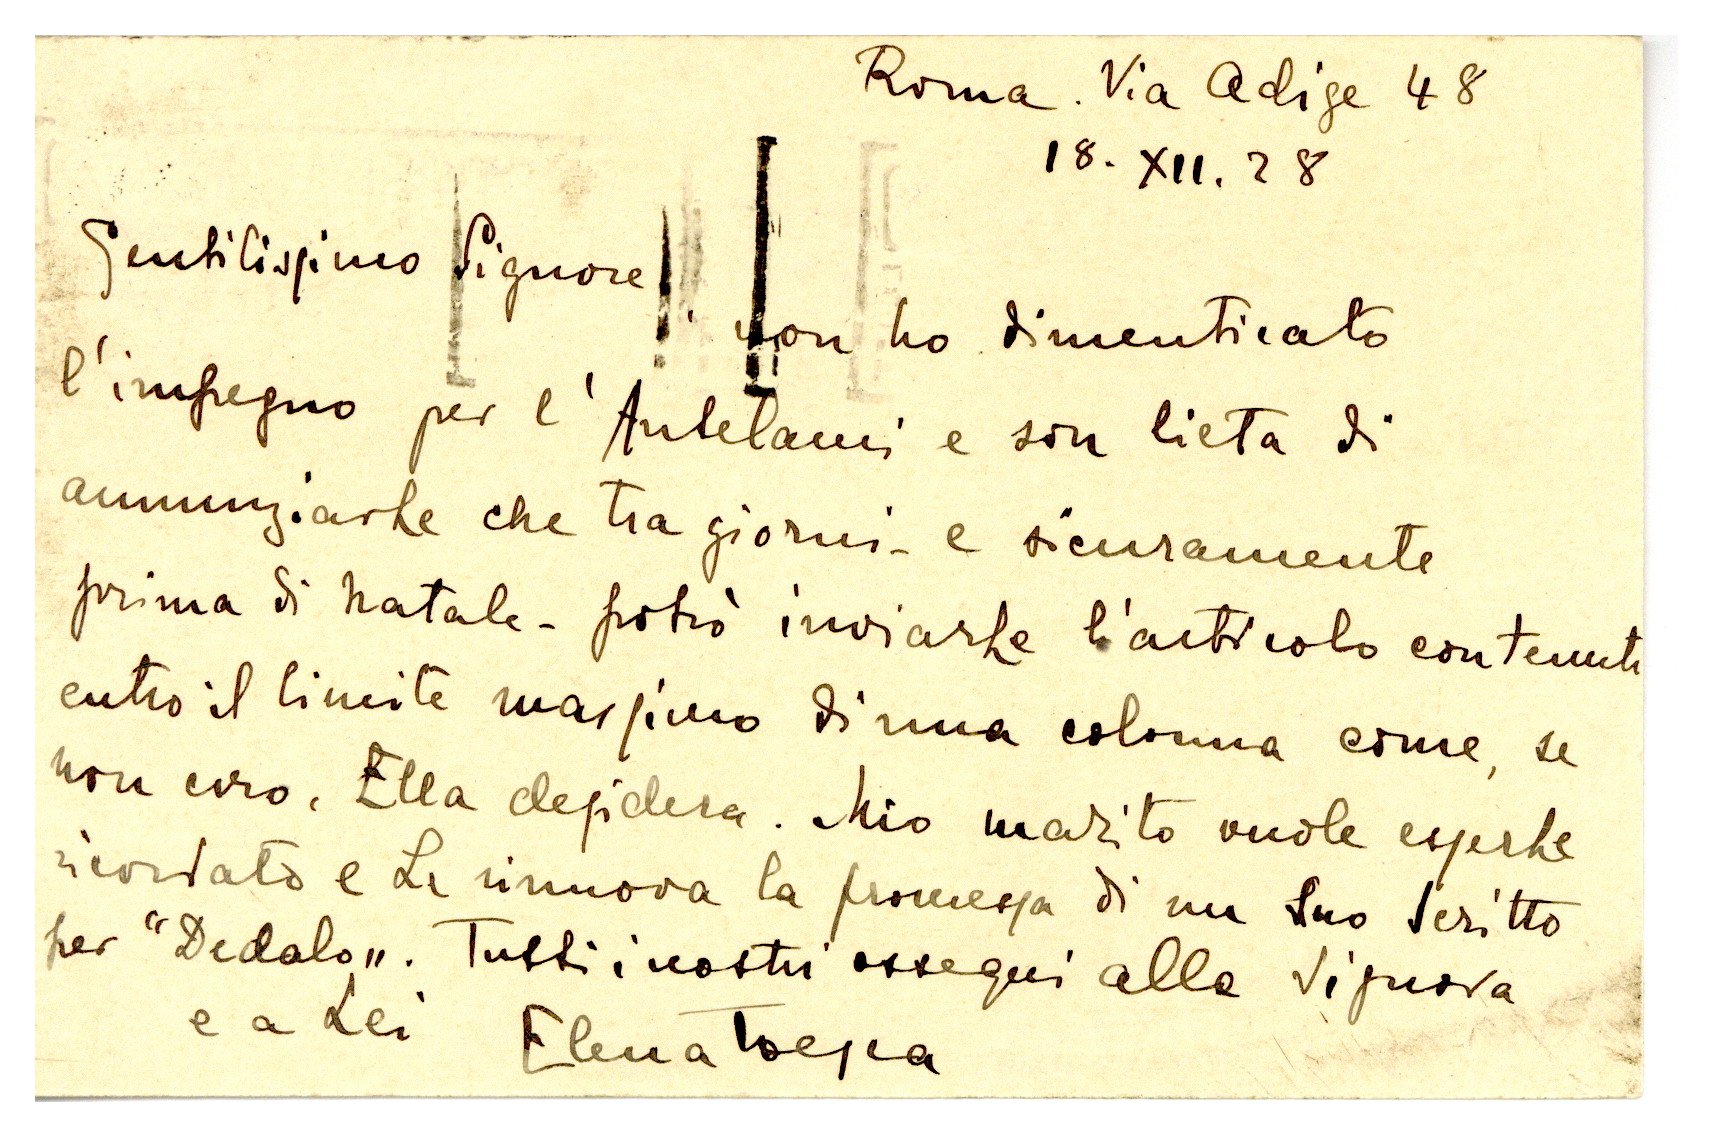 Roma. Via Adige 48
18. XII. 28
Gentilissimo Signore
non ho dimenticato
l'impegno per l'Antelami e son lieta di
annunziarLe che tra giorni - e sicuramente
prima di Natale - potrò inviarLe l'articolo contenuto
entro il limite massimo di una colonna come, se
non erro, Ella desidera. Mio marito vuole esserLe
ricordato e Le rinnova la promessa di un Suo scritto
per "Dedalo". Tutti i nostri ossequi alla Signora
e a Lei Elena Toesca